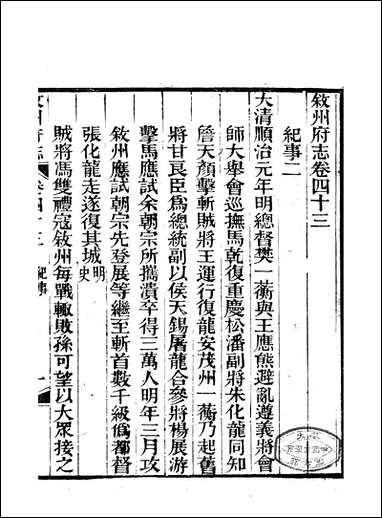 敘州府志卷四十三
紀事二
大清順治元年明總督樊一蘅與王應熊避亂遵義將會
師大舉會巡撫馬乾復重慶松潘副將朱化龍同知
詹天顏擊斬賊將王運行復龍安茂州一蘅乃起舊
將甘良臣爲總統副以侯天錫屠龍合參將楊展游
擊馬應試余朝宗所攜潰卒得三萬人明年三月攻
敘州應試朝宗先登展等繼至斬首數千級僞都督
張化龍走遂復其城明史
賊將馮雙禮寇敘州每戰輒敗孫可望以大衆接之
敘州府志 卷四十三 紀事 一